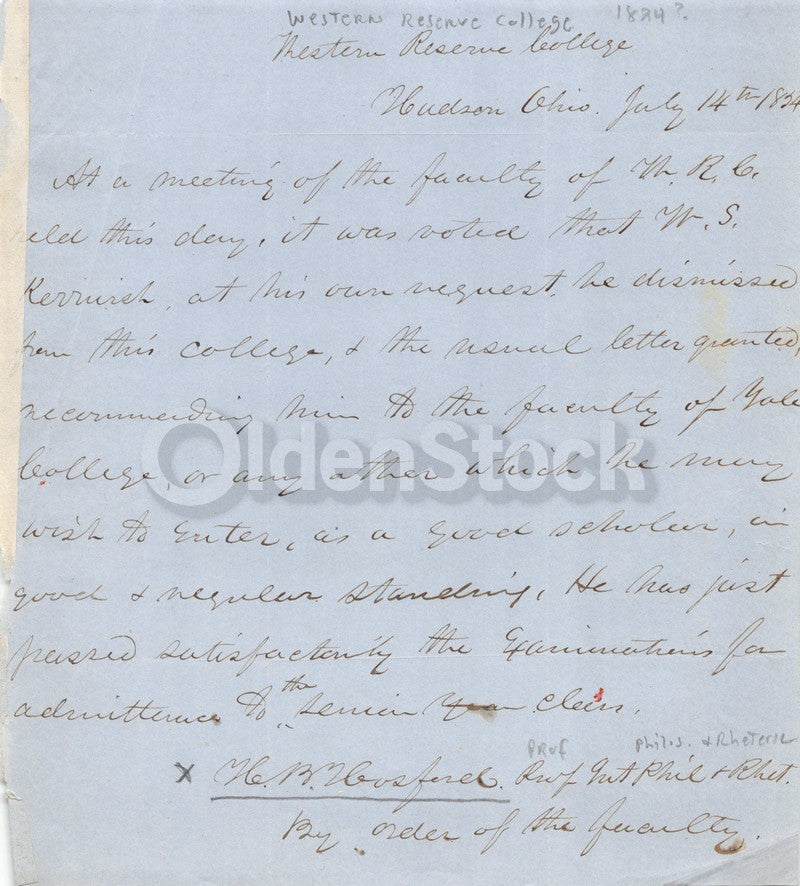 WESTERN RESERVE College 1824?
Western Reserve College
Hudson Ohio. July 14th 1854
At a meeting of the faculty of W. R. C.
held this day, it was voted that W. S.
Kerruish, at his own request, be dismissed
from this college, & the usual letter granted,
recommending him to the faculty of Yale
College, or any other which he may
wish to enter, as a good scholar, in
good & regular standing. He has just
passed satisfactorily the Examinations for
admittance to the Senior class.
Prof Philos. & Rhetoric
X H. B. Hosford. Prof Int Phil & Rhet.
By order of the faculty.
OldenStock